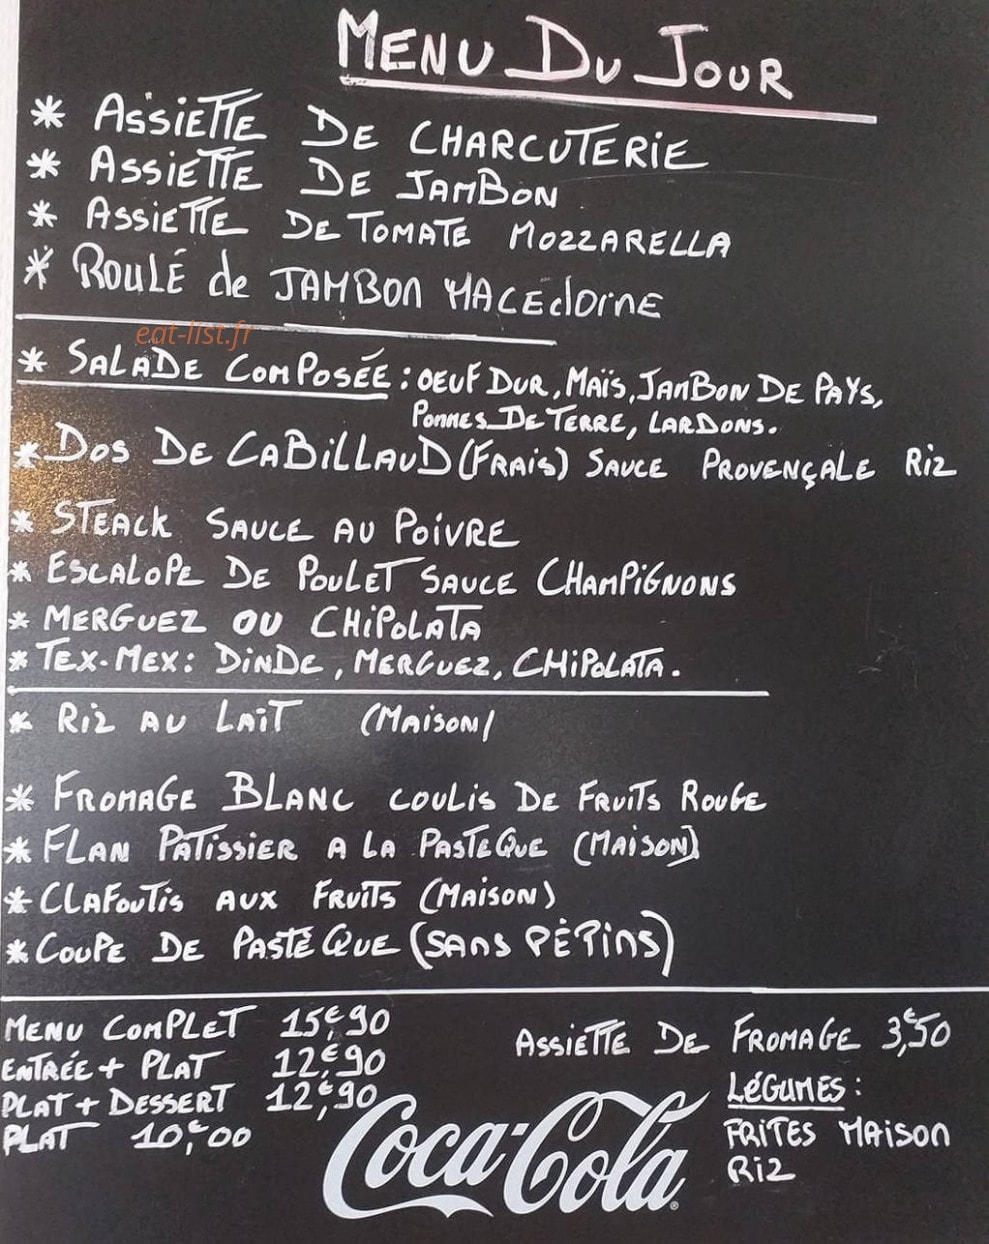 MENU DU JOUR
* ASSIETTE DE CHARCUTERIE
* ASSIETTE DE JAMBON
* ASSIETTE DE TOMATE MOZZARELLA
* ROULÉ de JAMBON MACEdOINE
eat-list.fr
* SALADE COMPOSÉE : OEUF DUR, MAÏS, JAMBON DE PAYS,
POMMES DE TERRE, LARDONS.
* DOS DE CABILLAUD (FRAIS) SAUCE PROVENÇALE RIZ
* STEACK SAUCE AU POIVRE
* ESCALOPE DE POULET SAUCE CHAMPIGNONS
* MERGUEZ OU CHIPOLATA
* TEX-MEX : DINDE, MERGUEZ, CHIPOLATA.
* RIZ AU LAIT (MAISON)
* FROMAGE BLANC COULIS DE FRUITS ROUGE
* FLAN PATISSIER A LA PASTEQUE (MAISON)
* CLAFOUTIS AUX FRUITS (MAISON)
* COUPE DE PASTÉQUE (SANS PÉPINS)
MENU COMPLET 15,€90
ENTRÉE + PLAT 12,€90
PLAT + DESSERT 12,€90
PLAT 10,€00
ASSIETTE DE FROMAGE 3,€50
LÉGUMES :
FRITES MAISON
RIZ
Coca-Cola